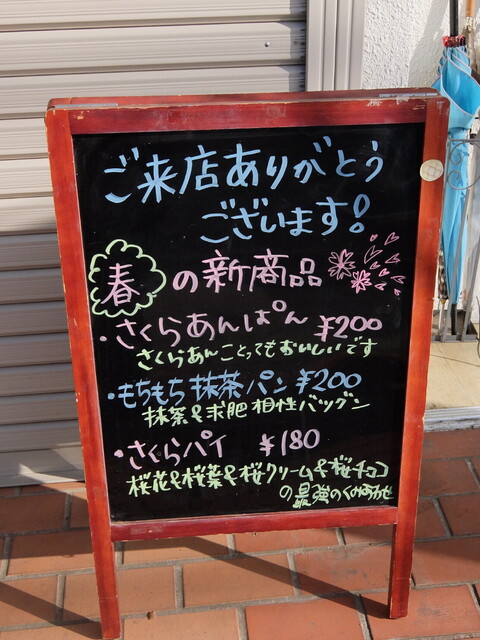 ご来店ありがとう
ございます!
春の新商品
・さくらあんぱん ¥200
さくらあんことってもおいしいです
・もちもち抹茶パン ¥200
抹茶&求肥相性バツグン
・さくらパイ ¥180
桜花&桜葉&桜クリーム&桜チョコ
の最強のくみあわせ